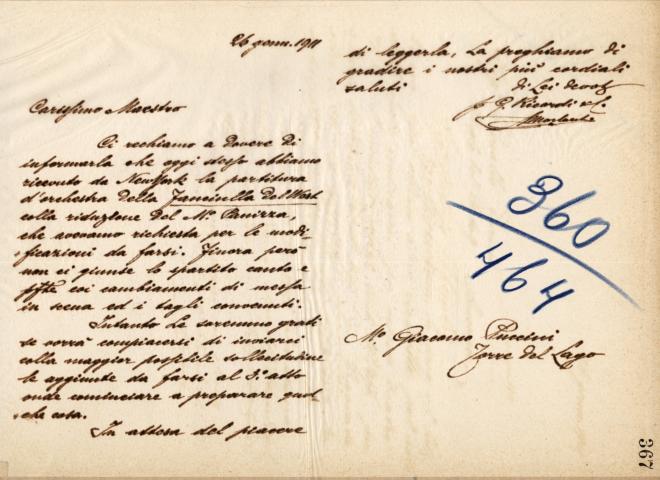 26 genn. 1911
Carissimo Maestro
Ci rechiamo a dovere di
informarla che oggi stesso abbiamo
ricevuto da New York la partitura
d'orchestra della Fanciulla Del West
colla riduzione del M.º Panizza,
che avevamo richiesta per le modi-
ficazioni da farsi. Finora però
non ci giunse lo spartito canto e
pfte coi cambiamenti di messa
in scena ed i tagli convenuti.
Intanto Le saremmo grati
se vorrà compiacersi di inviarci
colla maggior possibile sollecitudine
le aggiunte da farsi al 3.º atto
onde cominciare a preparare qual-
che cosa.
In attesa del piacere
di leggerla, La preghiamo di
gradire i nostri più cordiali
saluti
di Lei devot
p. G. Ricordi & C.
360
464
M.º Giacomo Puccini
Torre del Lago
367